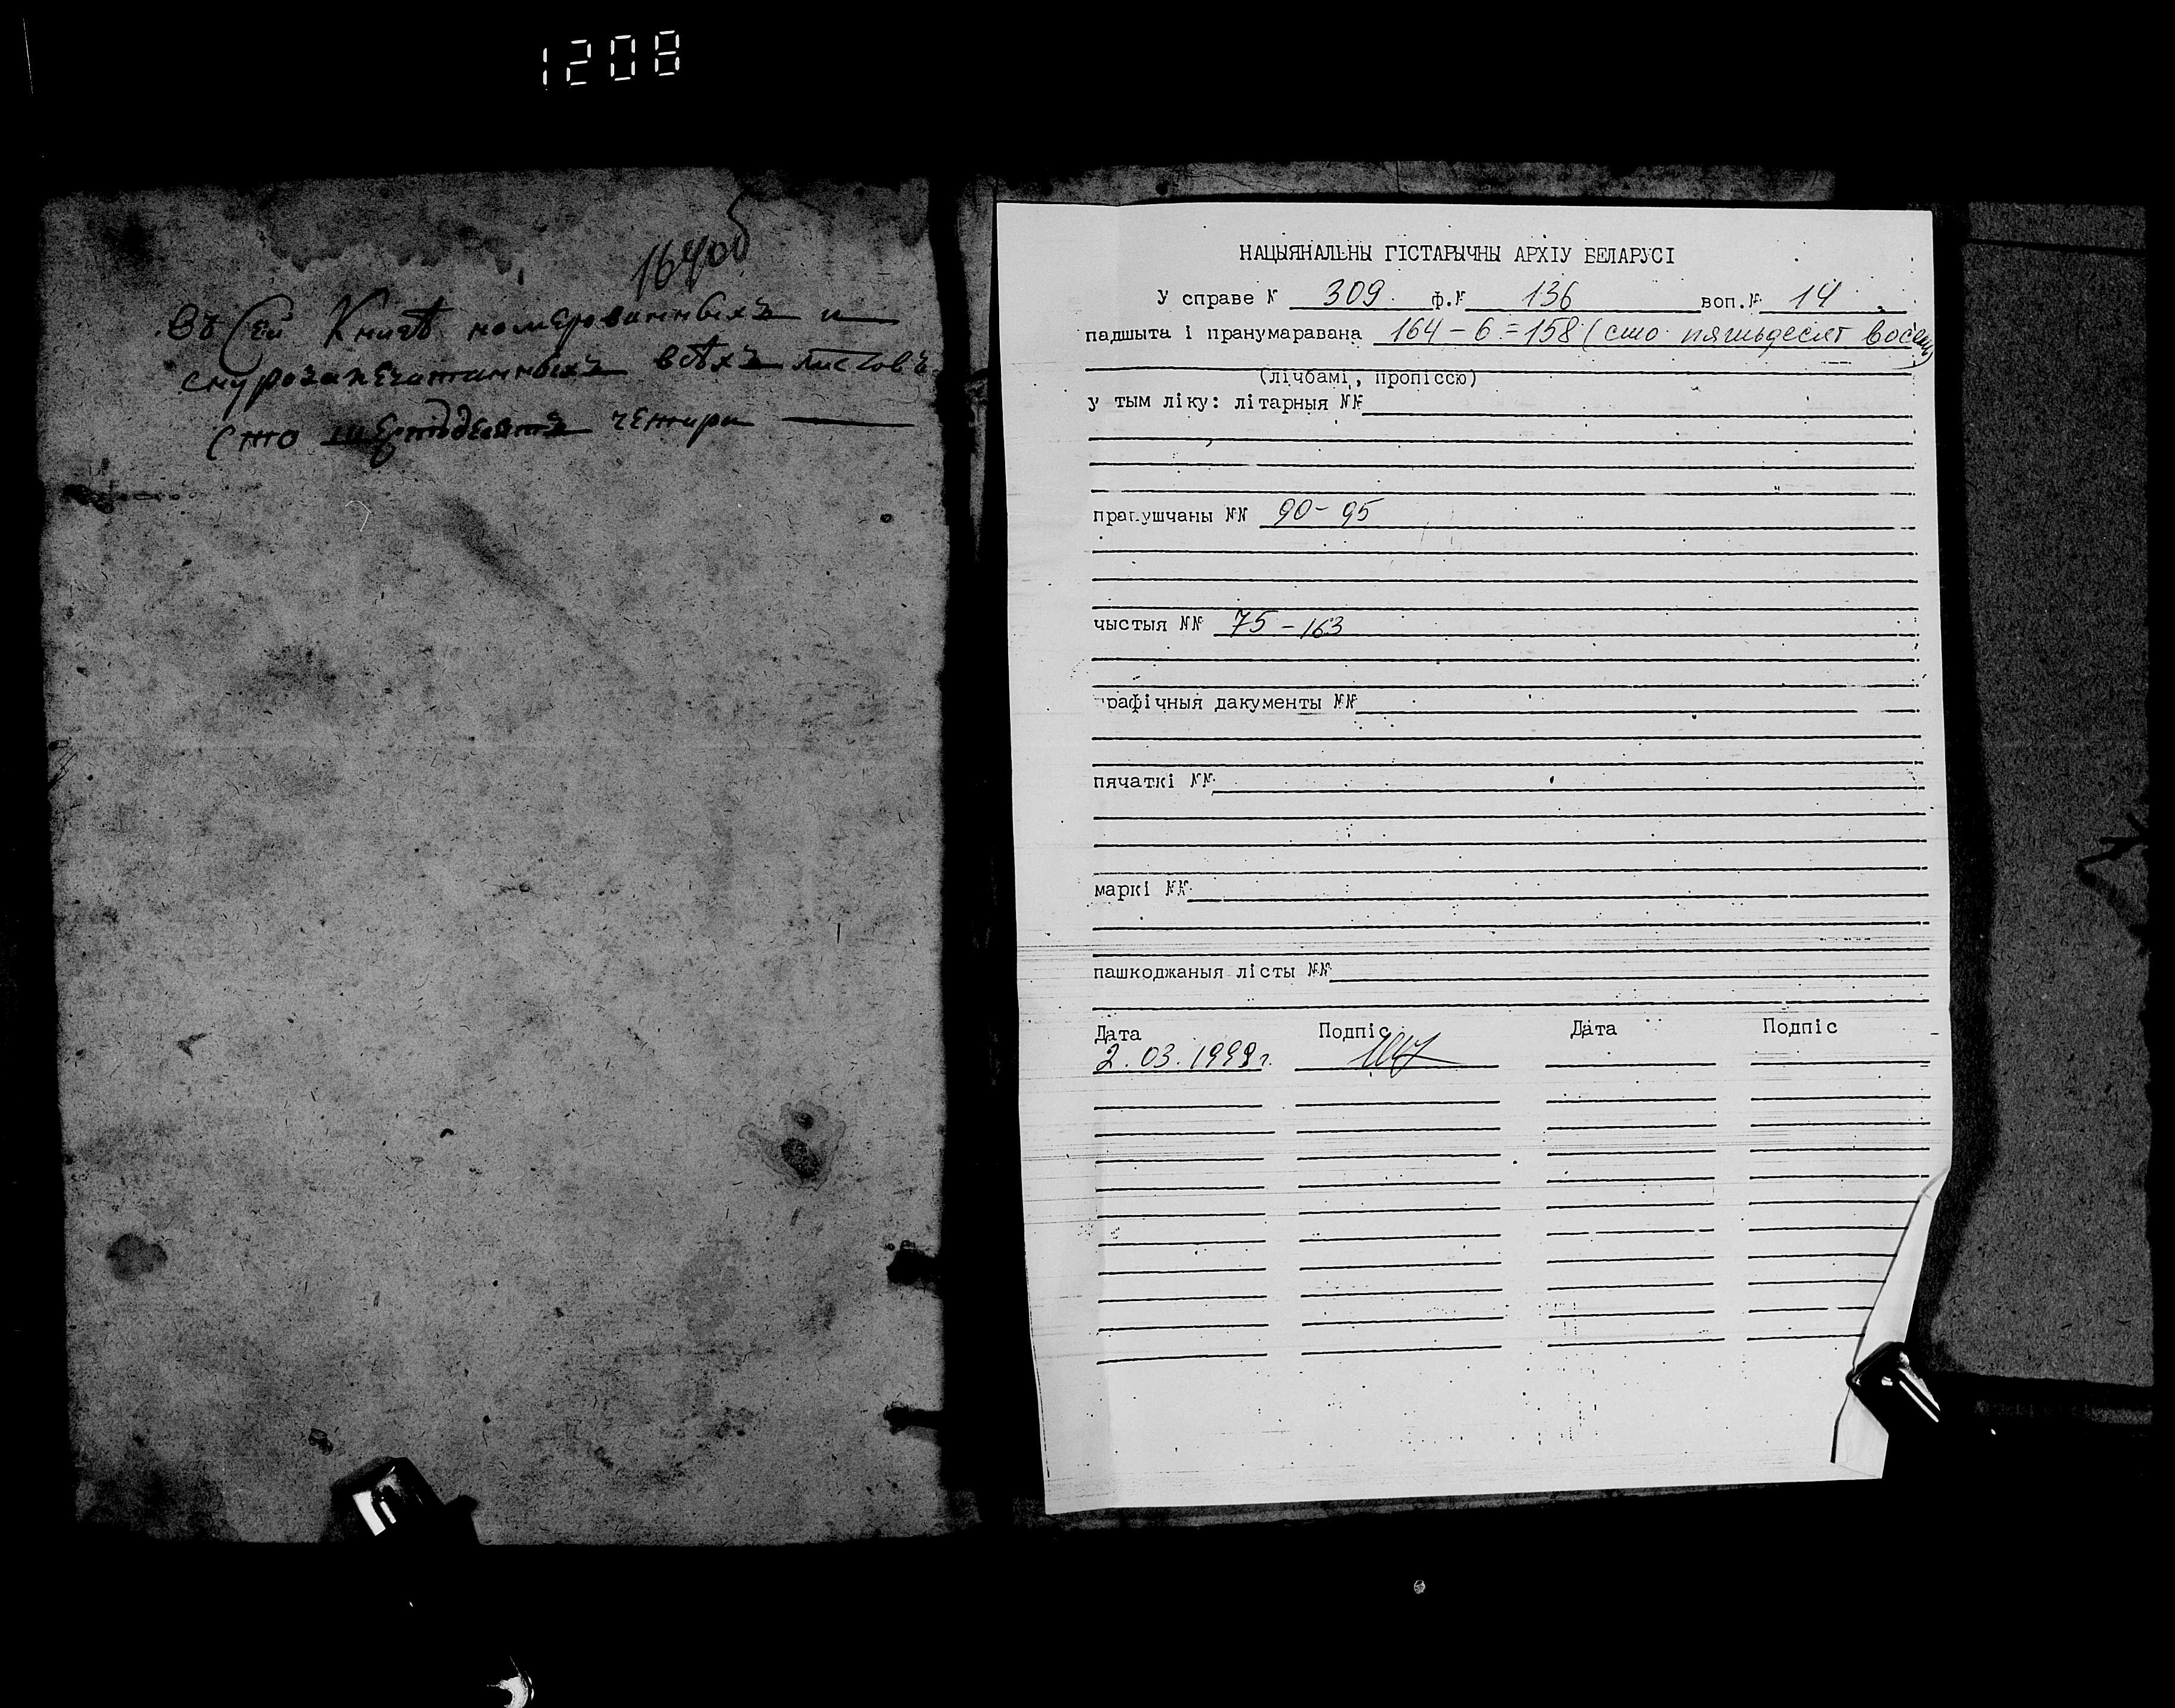 1208
164об
Въ Сей Книгѣ номерованныхъ и
снурозапечатанныхъ всѣхъ листовъ
Сто шестьдесятъ четыри
НАЦЫЯНАЛЬНЫ ГІСТАРЫЧНЫ АРХІУ БЕЛАРУСІ
У справе № 309. ф.№ 136 воп.№ 14
падшыта і пранумаравана 164 - 6 = 158 (сто пяцьдесят восем)
(лічбамі, пропіссю)
у тым ліку: літарныя №№
прапушчаны №№ 90 - 95
чыстыя №№ 75 - 163
графічныя дакументы №№
пячаткі №№
маркі №№
пашкоджаныя лісты №№
Дата Подпіс Дата Подпіс
2. 03. 1999 г.